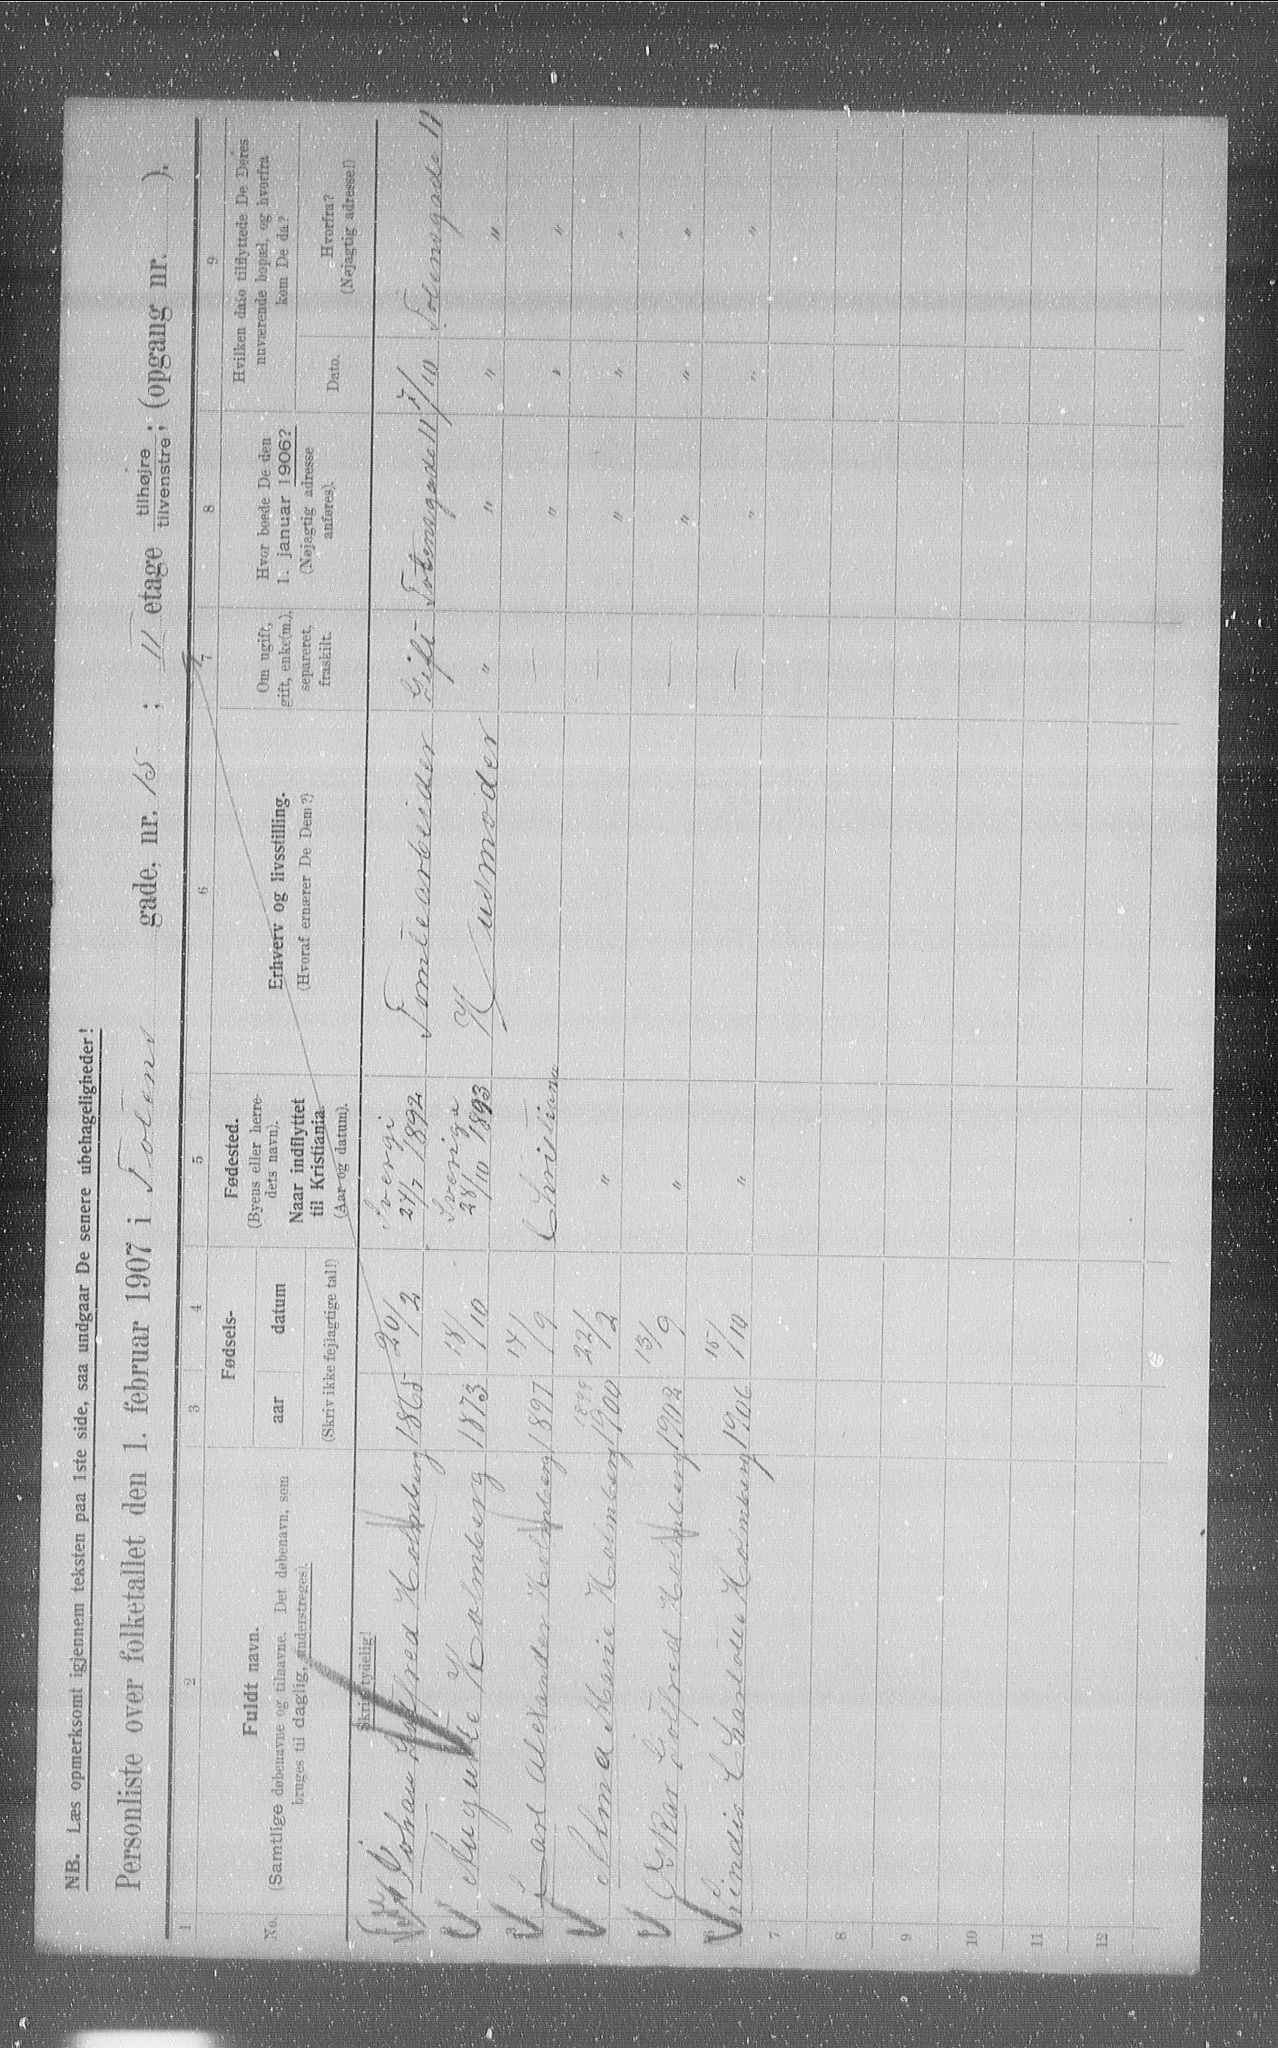 NB. Læs opmerksomt igjennem teksten paa 1ste side, saa undgaar De senere ubehageligheder!
Personliste over folketallet den 1. februar 1907 i Totens gade, nr. 15 ; II etage tilhøjre tilvenstre ; (opgang nr. ).
1 2 3 4 5 6 7 8 9
No. Fuldt navn. (Samtlige døbenavne og tilnavne. Det døbenavn, som bruges til daglig, understreges). Skriv tydelig!
Fødsels- aar datum (Skriv ikke fejlagtige tal!)
Fødested. (Byens eller herredets navn). Naar indflyttet til Kristiania. (Aar og datum).
Erhverv og livsstilling. (Hvoraf ernærer De Dem?)
Om ugift, gift, enke(m.), separeret, fraskilt.
Hvor boede De den 1. januar 1906? (Nøjagtig adresse anføres).
Hvilken dato tilflyttede De Deres nuværende bopæl, og hvorfra kom De da?
Dato. Hvorfra? (Nøjagtig adresse!)
Johan Gotfred Holmberg 1865 20/2 Sverige 24/7 1892 Tomtearbeider Gift Totensgade 11 1/10 Totensgade 11
2 Auguste Holmberg 1873 18/10 Sverige 28/10 1893 Husmoder " " " "
3 Carl Alexander Holmberg 1897 14/9 Christiana — " " "
Alma Marie Holmberg 1899 1900 22/2 " — " " "
Oskar Gotfred Holmberg 1902 13/9 " — " " "
Charlotte Holmberg 1906 15/10 " — " " "
7
8
9
10
11
12